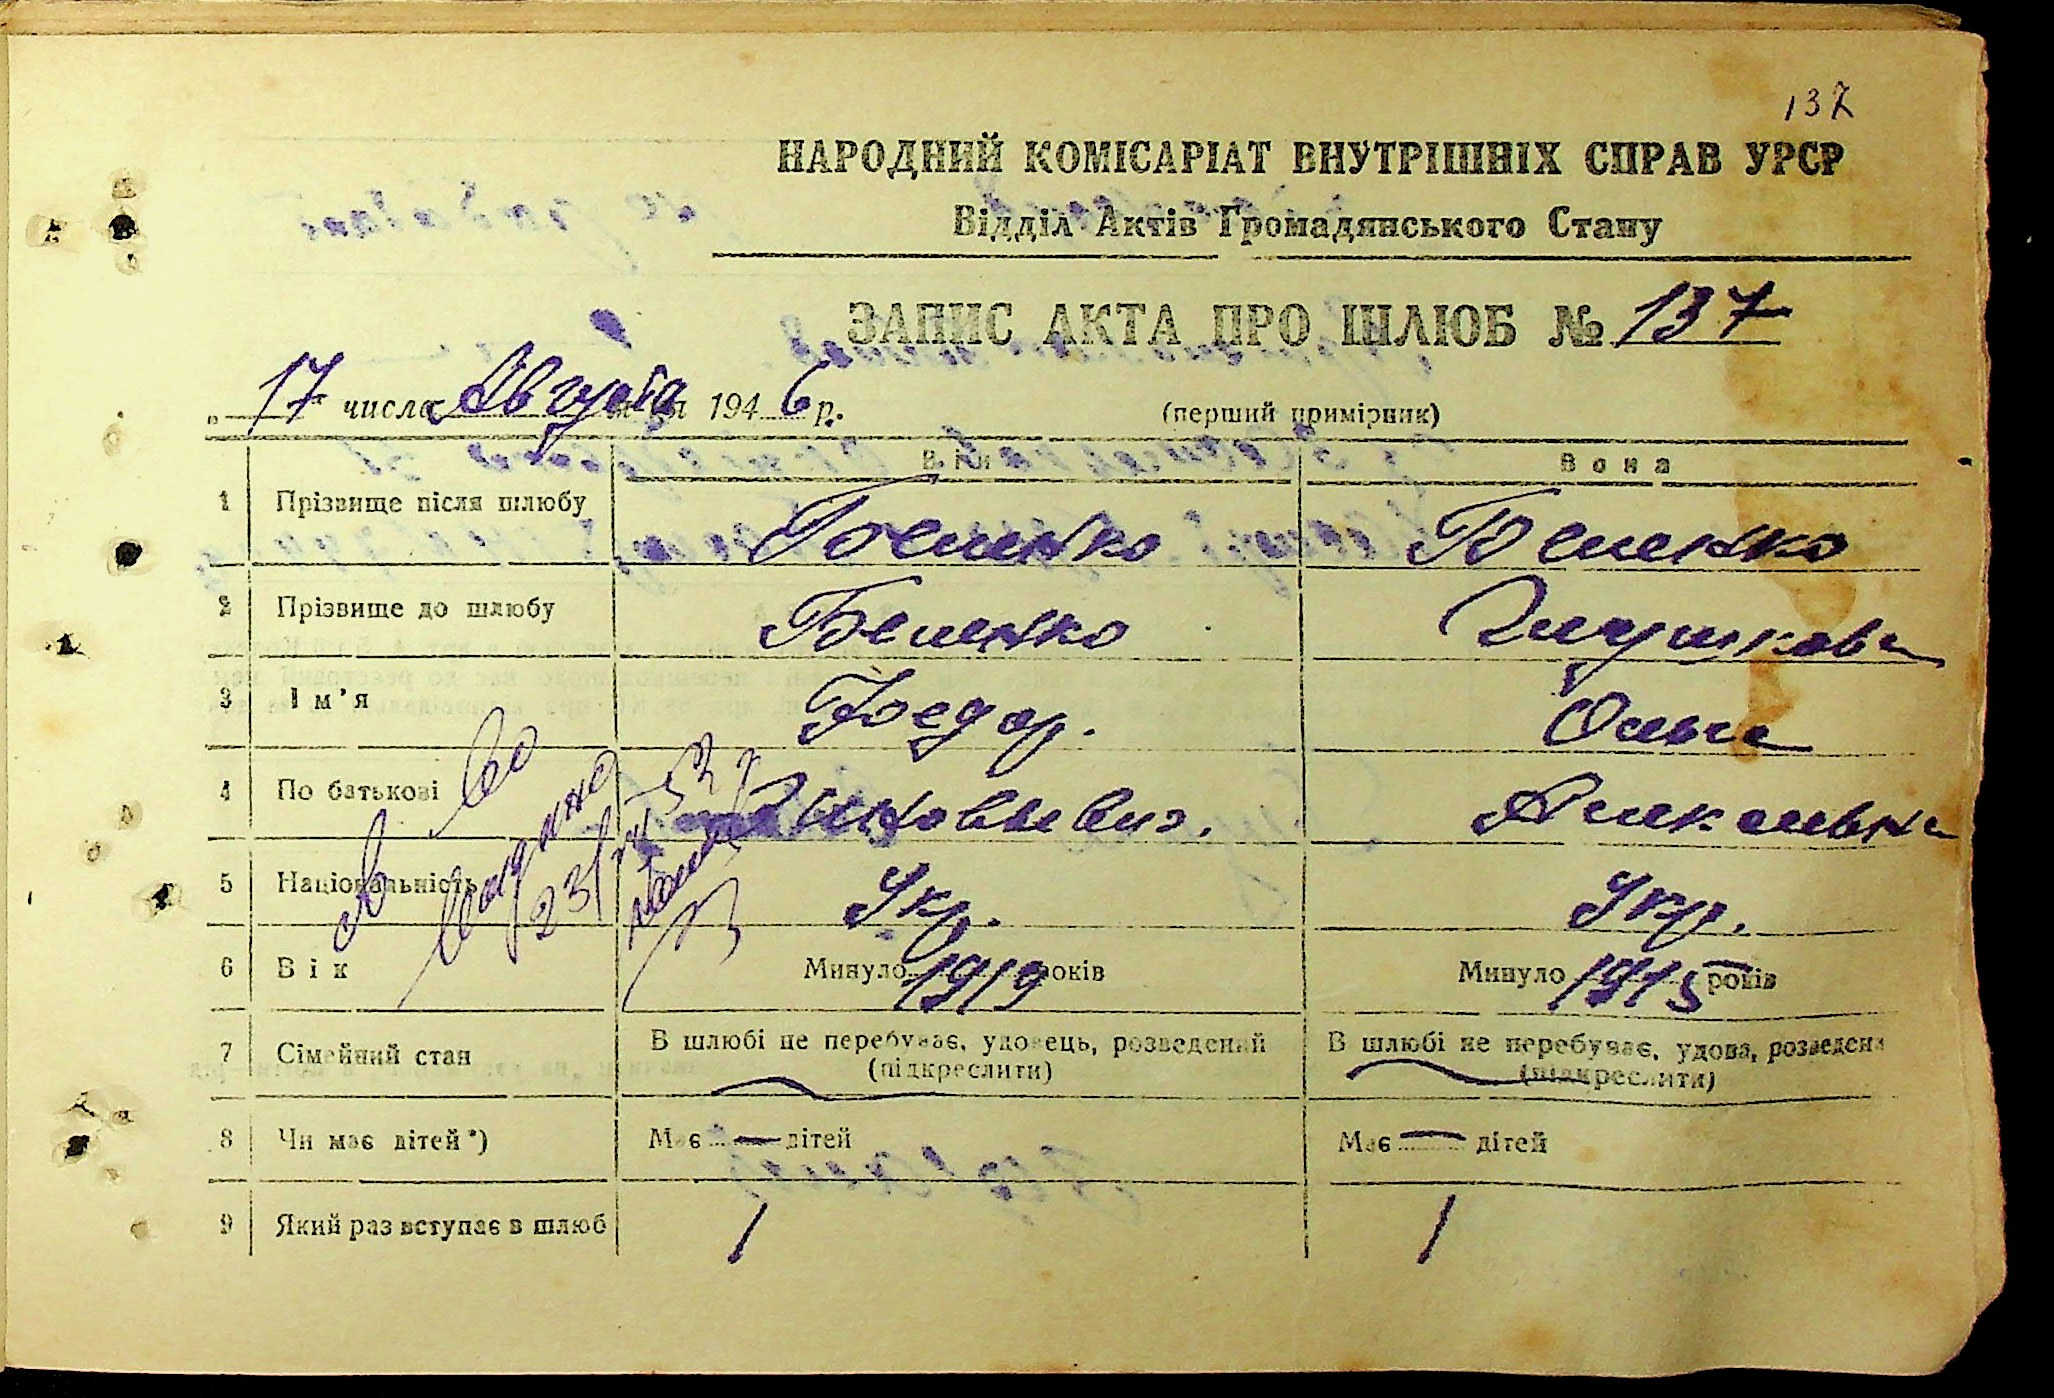 137
НАРОДНИЙ КОМІСАРІАТ ВНУТРІШНІХ СПРАВ УРСР
Відділ Актів Громадянського Стану
ЗАПИС АКТА ПРО ШЛЮБ № 137
„ 17 числа Августа 194 6 р.
(перший примірник)
Він Вона
1 Прізвище після шлюбу Беленко Беленко
2 Прізвище до шлюбу Беленко Глушкова
3 Ім'я Федор. Ольга
4 По батькові Зиновьевич.
5 Національність Укр. Укр.
6 Вік Минуло 1919 років Минуло 1915 років
7 Сімейний стан В шлюбі не перебуває, удовець, розведений (підкреслити) В шлюбі не перебуває, удова, розведена (підкреслити)
8 Чи має дітей*) Має — дітей Має — дітей
9 Який раз вступає в шлюб 1 1